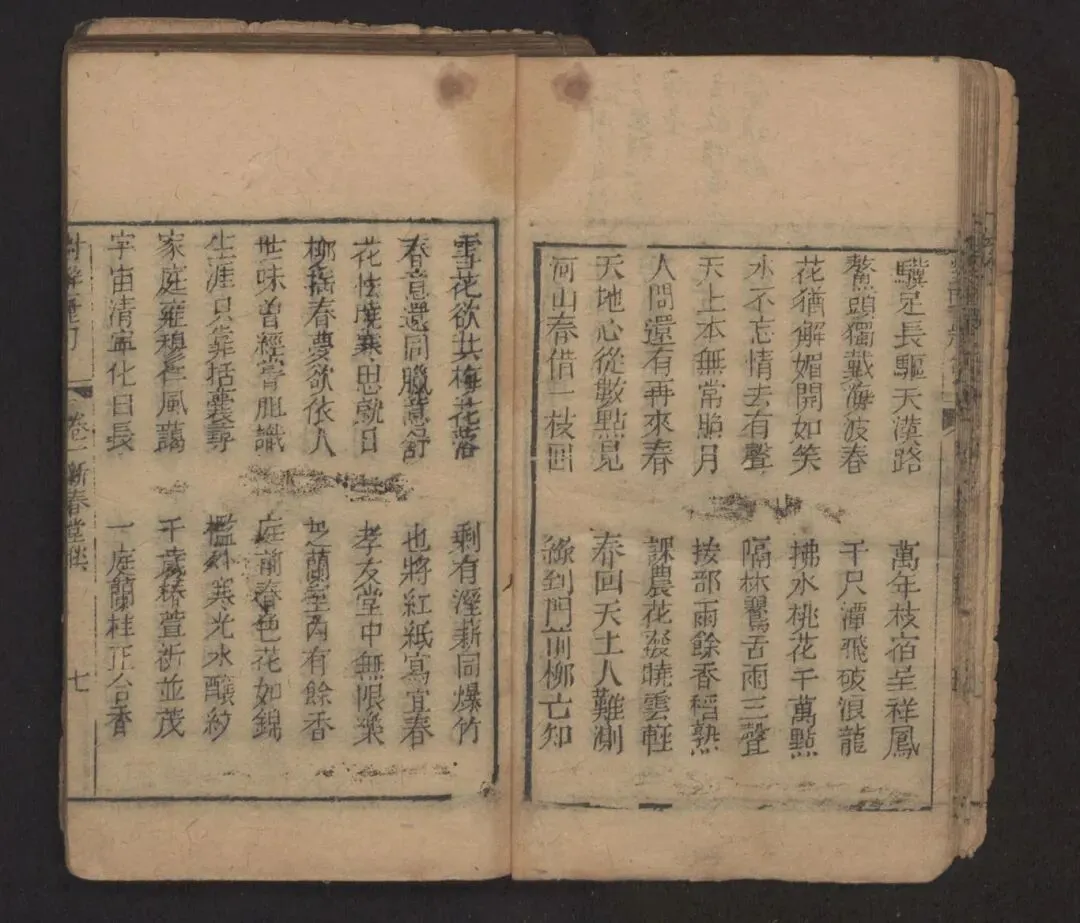 驥足長驅天漢路
萬年枝宿呈祥鳳
鰲頭獨戴海波春
千尺潭飛破浪龍
花猶解媚開如笑
拂水桃花千萬點
水不忘情去有聲
隔林鶯舌兩三聲
天上本無常照月
按部雨餘香稻熟
人間還有再來春
課農花發曉雲輕
天地心從數點見
春回天上人難測
河山春借一枝回
綠到門前柳已知
雪花欲共梅花落
剩有溼薪同爆竹
春意還同臘意舒
也將紅紙寫宜春
花怯曉寒思就日
孝友堂中無限樂
柳搖春夢欲依人
芝蘭室內有餘香
世味曾經嘗胆識
庭前春色花如錦
生涯只靠括囊尋
檻外寒光水釀紗
家庭雍穆仁風藹
千歲椿萱祈並茂
宇宙清寧化日長
一庭蘭桂正合香
卷一新春堂聯
七